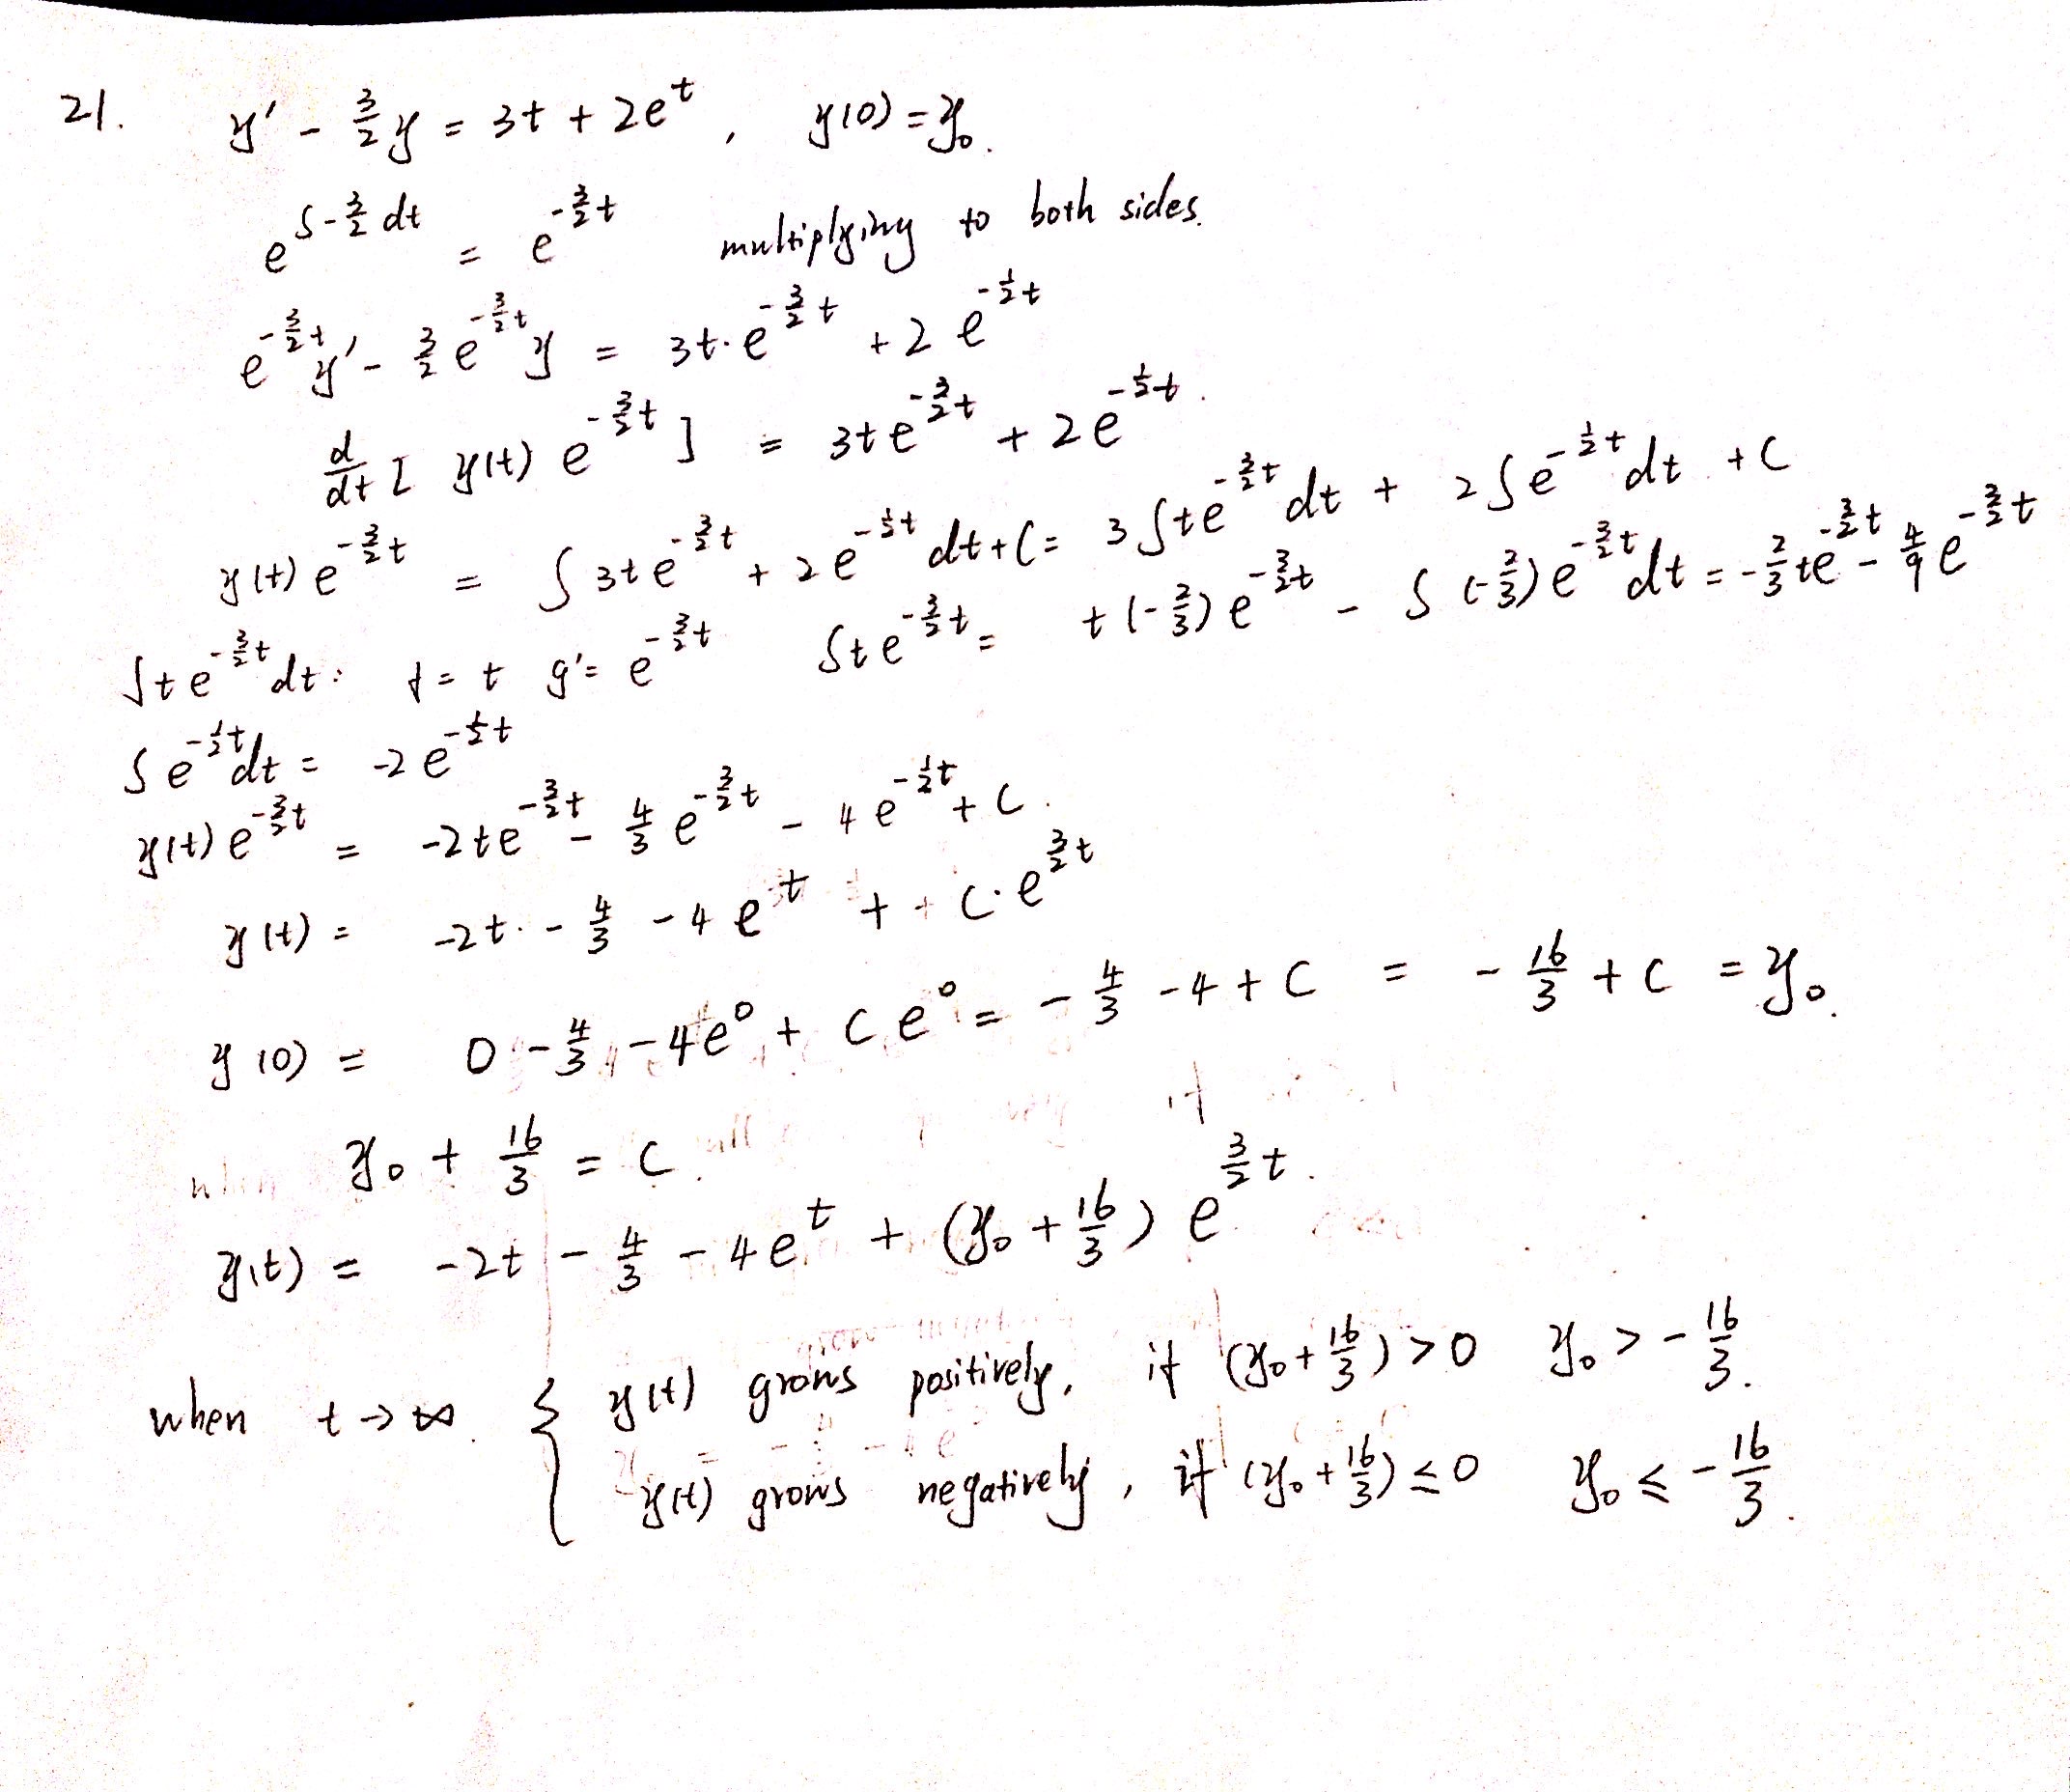 21. y' - 3/2 y = 3t + 2e^t , y(0) = y₀.
e^{∫-3/2 dt} = e^{-3/2 t} multiplying to both sides.
e^{-3/2 t} y' - 3/2 e^{-3/2 t} y = 3t·e^{-3/2 t} + 2 e^{-1/2 t}
d/dt [ y(t) e^{-3/2 t} ] = 3te^{-3/2 t} + 2e^{-1/2 t}.
y(t) e^{-3/2 t} = ∫ 3te^{-3/2 t} + 2e^{-1/2 t} dt + C = 3 ∫te^{-3/2 t} dt + 2 ∫e^{-1/2 t} dt + C
∫te^{-3/2 t} dt: f = t g' = e^{-3/2 t} ∫te^{-3/2 t} = t(-2/3) e^{-3/2 t} - ∫ (-2/3) e^{-3/2 t} dt = -2/3 te^{-3/2 t} - 4/9 e^{-3/2 t}
∫e^{-1/2 t} dt = -2 e^{-1/2 t}
y(t) e^{-3/2 t} = -2te^{-3/2 t} - 4/3 e^{-3/2 t} - 4e^{-1/2 t} + C.
y(t) = -2t. - 4/3 - 4 e^t + + C·e^{3/2 t}
y(0) = 0 - 4/3 - 4e^0 + C e^0 = - 4/3 - 4 + C = - 16/3 + C = y₀.
y₀ + 16/3 = C.
y(t) = -2t - 4/3 - 4e^t + (y₀ + 16/3) e^{3/2 t}.
when t → ∞. { y(t) grows positively, if (y₀ + 16/3) > 0 y₀ > - 16/3.
y(t) grows negatively, if (y₀ + 16/3) ≤ 0 y₀ ≤ - 16/3.